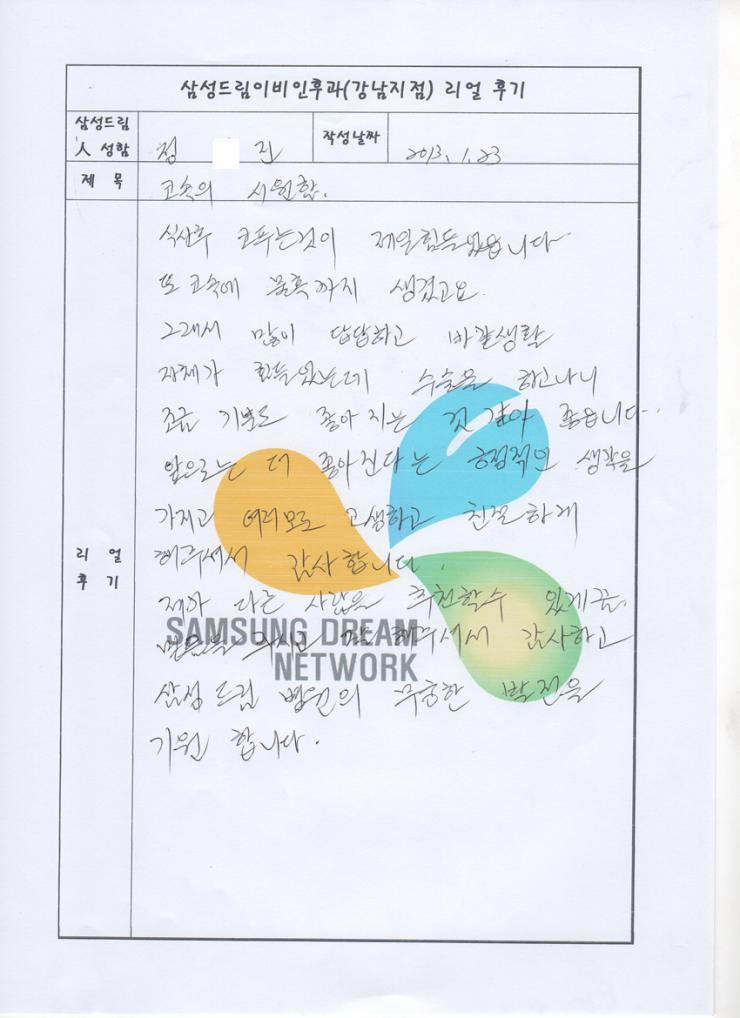 삼성드림이비인후과(강남지점) 리얼 후기
삼성드림
人 성함
정 진
작성날짜
2013. 1. 23
제 목
코속의 시원함.
리 얼
후 기
식사후 코푸는것이 제일힘들었읍니다
또 코속에 물혹까지 생겼고요.
그래서 많이 답답하고 바깥생활
자체가 힘들었는데 수술을 하고나니
조금 기분도 좋아 지는 것 같아 좋읍니다.
앞으로는 더 좋아진다는 긍정적인 생각을
가지고 여러모로 고생하고 친절하게
해주셔서 감사합니다.
제가 다른 사람을 추천할수 있게끔.
주시고 해주셔서 감사하고
삼성 드림 병원의 무궁한 발전을
기원 합니다.
SAMSUNG DREAM
NETWORK